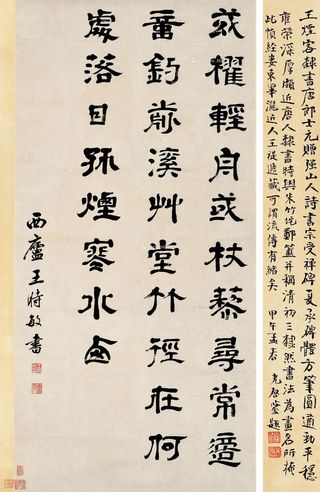 王煙客隸書唐郎士元贈強山人詩書宗受禪碑夏承碑體方筆圓遒勁平穩
雍榮深厚頗近唐人隸書時與朱竹垞鄭簠并稱清初三隸然書法為畫名所掩
此幀經婁東畢瀧近人王禔遞藏可謂流傳有緒矣 甲午孟春
或櫂輕舟或杖藜尋常適
意釣前溪艸堂竹徑在何
處落日孤煙寒水西
西廬王時敏書